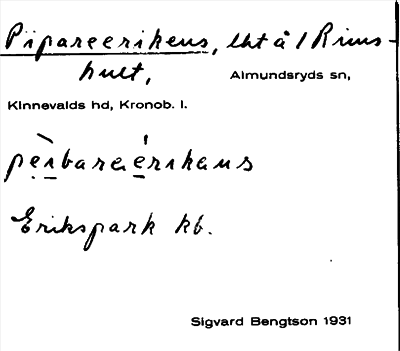 Pipareerikens, lht å 1 Rims-
hult, Almundsryds sn,
Kinnevalds hd, Kronob. l.
pèibaraérikens
Erikspark kb.
Sigvard Bengtson 1931